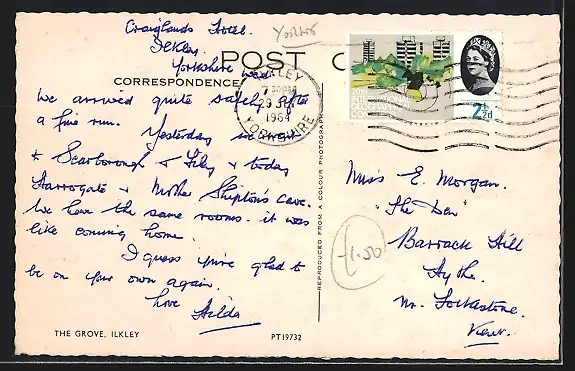 Craiglands Hotel.
Ilkley.
Yorkshire
Wed.
POST C
CORRESPONDENCE
We arrived quite safely after
a fine run. Yesterday we went
to Scarborough & Filey & today
Harrogate & Mother Shipton's Cave.
We have the same rooms. it was
like coming home.
I guess you're glad to
be on your own again.
Love
Hilda
THE GROVE, ILKLEY
PT19732
REPRODUCED FROM A COLOUR PHOTOGRAPH
ILKLEY
7 30PM
29 JLY
1964
YORKSHIRE
20TH
INTERNATIONAL
GEOGRAPHICAL
CO
2½d
Miss E. Morgan.
"The Den"
Barrack Hill
Hythe.
Nr. Folkestone.
Kent.
1.50